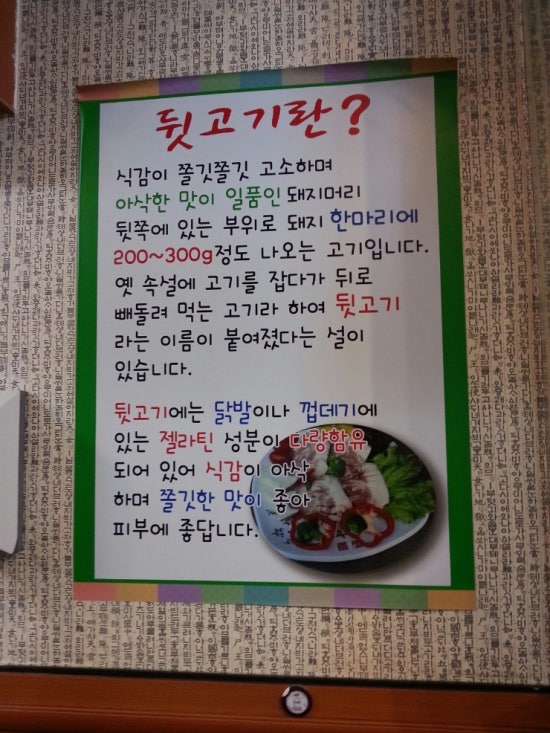 뒷고기란?
식감이 쫄깃쫄깃 고소하며
아삭한 맛이 일품인 돼지머리
뒷쪽에 있는 부위로 돼지 한마리에
200~300g정도 나오는 고기입니다.
옛 속설에 고기를 잡다가 뒤로
빼돌려 먹는 고기라 하여 뒷고기
라는 이름이 붙여졌다는 설이
있습니다.
뒷고기에는 닭발이나 껍데기에
있는 젤라틴 성분이 다량함유
되어 있어 식감이 아삭
하며 쫄깃한 맛이 좋아
피부에 좋답니다.